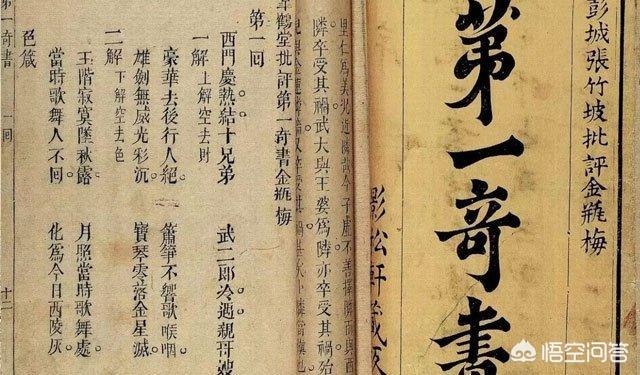 彭城張竹坡批評金瓶梅
第一奇書
影松軒藏
隣卒受其禍武大與王婆為隣亦卒受其禍殆
鶴堂批評第一奇書金瓶梅
第一回
西門慶熱結十兄弟 武二郎冷遇親哥嫂
一解 上解空去財
豪華去後行人絕 簫箏不響歌喉咽
雄劍無威光彩沉 寶琴零落金星滅
二解 下解空去色
玉階寂寞墜秋露 月照當時歌舞處
當時歌舞人不回 化為今日西陵灰
色箴
第一奇書 一回 十二
悟空问答